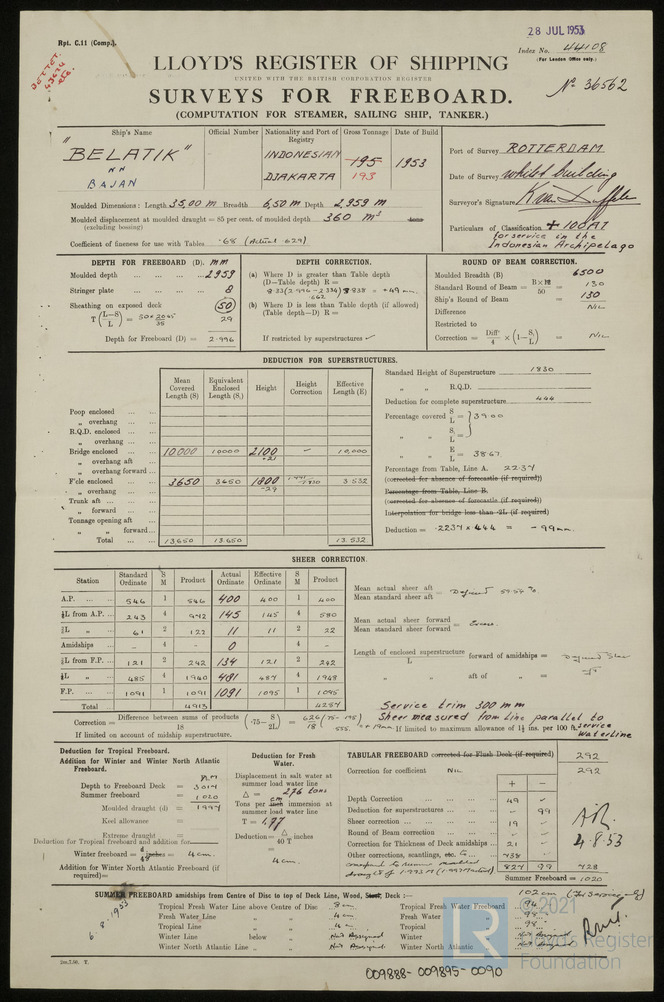 Rpt. C.11 (Comp.).
28 JUL 1953
Index No. 44108
(For London Office only.)
LLOYD'S REGISTER OF SHIPPING
UNITED WITH THE BRITISH CORPORATION REGISTER
Nº 36562
SURVEYS FOR FREEBOARD.
(COMPUTATION FOR STEAMER, SAILING SHIP, TANKER.)
Ship's Name
Official Number
Nationality and Port of Registry
Gross Tonnage
Date of Build
"BELATIK"
NN
BAJAN
INDONESIAN
DJAKARTA
195
193
1953
Port of Survey ROTTERDAM
Date of Survey whilst building
Surveyor's Signature
Particulars of Classification + 100A1
for service in the
Indonesian Archipelago
Moulded Dimensions: Length 35,00 M Breadth 6,50 M Depth 2,959 M
Moulded displacement at moulded draught = 85 per cent. of moulded depth 360 M³ tons
(excluding bossing)
Coefficient of fineness for use with Tables .68 (Actual .629)
DEPTH FOR FREEBOARD (D). mm
Moulded depth ... 2959
Stringer plate ... 8
Sheathing on exposed deck (50)
T (L-S/L) = 29
Depth for Freeboard (D) = 2.996
DEPTH CORRECTION.
(a) Where D is greater than Table depth
(D—Table depth) R =
(b) Where D is less than Table depth (if allowed)
(Table depth—D) R =
If restricted by superstructures ✓
ROUND OF BEAM CORRECTION.
Moulded Breadth (B) 6500
Standard Round of Beam = B×12/50 = 130
Ship's Round of Beam = 130
Difference NIL
Restricted to
Correction = Diff/4 × (1—S1/L) = NIL
DEDUCTION FOR SUPERSTRUCTURES.
Mean Covered Length (S)
Equivalent Enclosed Length (S1)
Height
Height Correction
Effective Length (E)
Poop enclosed
„ overhang
R.Q.D. enclosed
„ overhang
Bridge enclosed 10.000 10000 2100 – 10,000
„ overhang aft
„ overhang forward
F'cle enclosed 3650 3650 1800 3.532
„ overhang
Trunk aft
„ forward
Tonnage opening aft
„ „ forward
Total 13650 13.650 13.532
Standard Height of Superstructure 1830
„ „ R.Q.D.
Deduction for complete superstructure 444
Percentage covered S/L = 39.00
„ „ S1/L =
„ „ E/L = 38.67
Percentage from Table, Line A. 22.37
(corrected for absence of forecastle (if required))
Percentage from Table, Line B.
(corrected for absence of forecastle (if required))
Interpolation for bridge less than ·2L (if required)
Deduction = .2237 x 444 = – 99 mm.
SHEER CORRECTION.
Station
Standard Ordinate
S M
Product
Actual Ordinate
Effective Ordinate
S M
Product
A.P. 546 1 546 400 400 1 400
⅙L from A.P. 243 4 972 145 145 4 580
⅓L „ 61 2 122 11 11 2 22
Amidships – 4 – 0 4 –
⅓L from F.P. 121 2 242 134 121 2 242
⅙L „ 485 4 1940 481 487 4 1948
F.P. 1091 1 1091 1091 1095 1 1095
Total 4913 4287
Mean actual sheer aft
Mean standard sheer aft =
Mean actual sheer forward
Mean standard sheer forward = Excess.
Length of enclosed superstructure forward of amidships =
L
„ aft of „ =
Service trim 300 mm
Sheer measured from line parallel to
service
waterline
Correction = Difference between sums of products/18 (·75— S/2L) =
If limited on account of midship superstructure.
If limited to maximum allowance of 1½ ins. per 100 ft.
Deduction for Tropical Freeboard.
Addition for Winter and Winter North Atlantic Freeboard.
Depth to Freeboard Deck =
Summer freeboard = 1020
Moulded draught (d) = 1997
Keel allowance =
Extreme draught =
Deduction for Tropical freeboard and addition for
Winter freeboard = = 4 cm.
Addition for Winter North Atlantic Freeboard (if required)=
Deduction for Fresh Water.
Displacement in salt water at summer load line water
Δ = 276 tons
Tons per cm inch immersion at summer load line water
T = 1.77
Deduction= Δ/40 T inches
=
4 cm.
TABULAR FREEBOARD corrected for Flush Deck (if required) 292
Correction for coefficient NIL 292
+ –
Depth Correction 49 –
Deduction for superstructures – 99
Sheer correction 19
Round of Beam correction
Correction for Thickness of Deck amidships 21
Other corrections, scantlings, etc. 738
827 99 728
Summer Freeboard = 1020
4.8.53
SUMMER FREEBOARD amidships from Centre of Disc to top of Deck Line, Wood, Steel, Deck:— 102 cm
Tropical Fresh Water Line above Centre of Disc 8 cm
Fresh Water Line „ „ 4 cm
Tropical Line „ „ 4 cm
Winter Line below „ Not Assigned
Winter North Atlantic Line „ „ Not Assigned
Tropical Fresh Water Freeboard 94
Fresh Water „ 98
Tropical „ 98
Winter „ Not Assigned
Winter North Atlantic „ Not Assigned
6.8.1953
© 2021
LR
Lloyd's Register
Foundation
009888-009895-0090